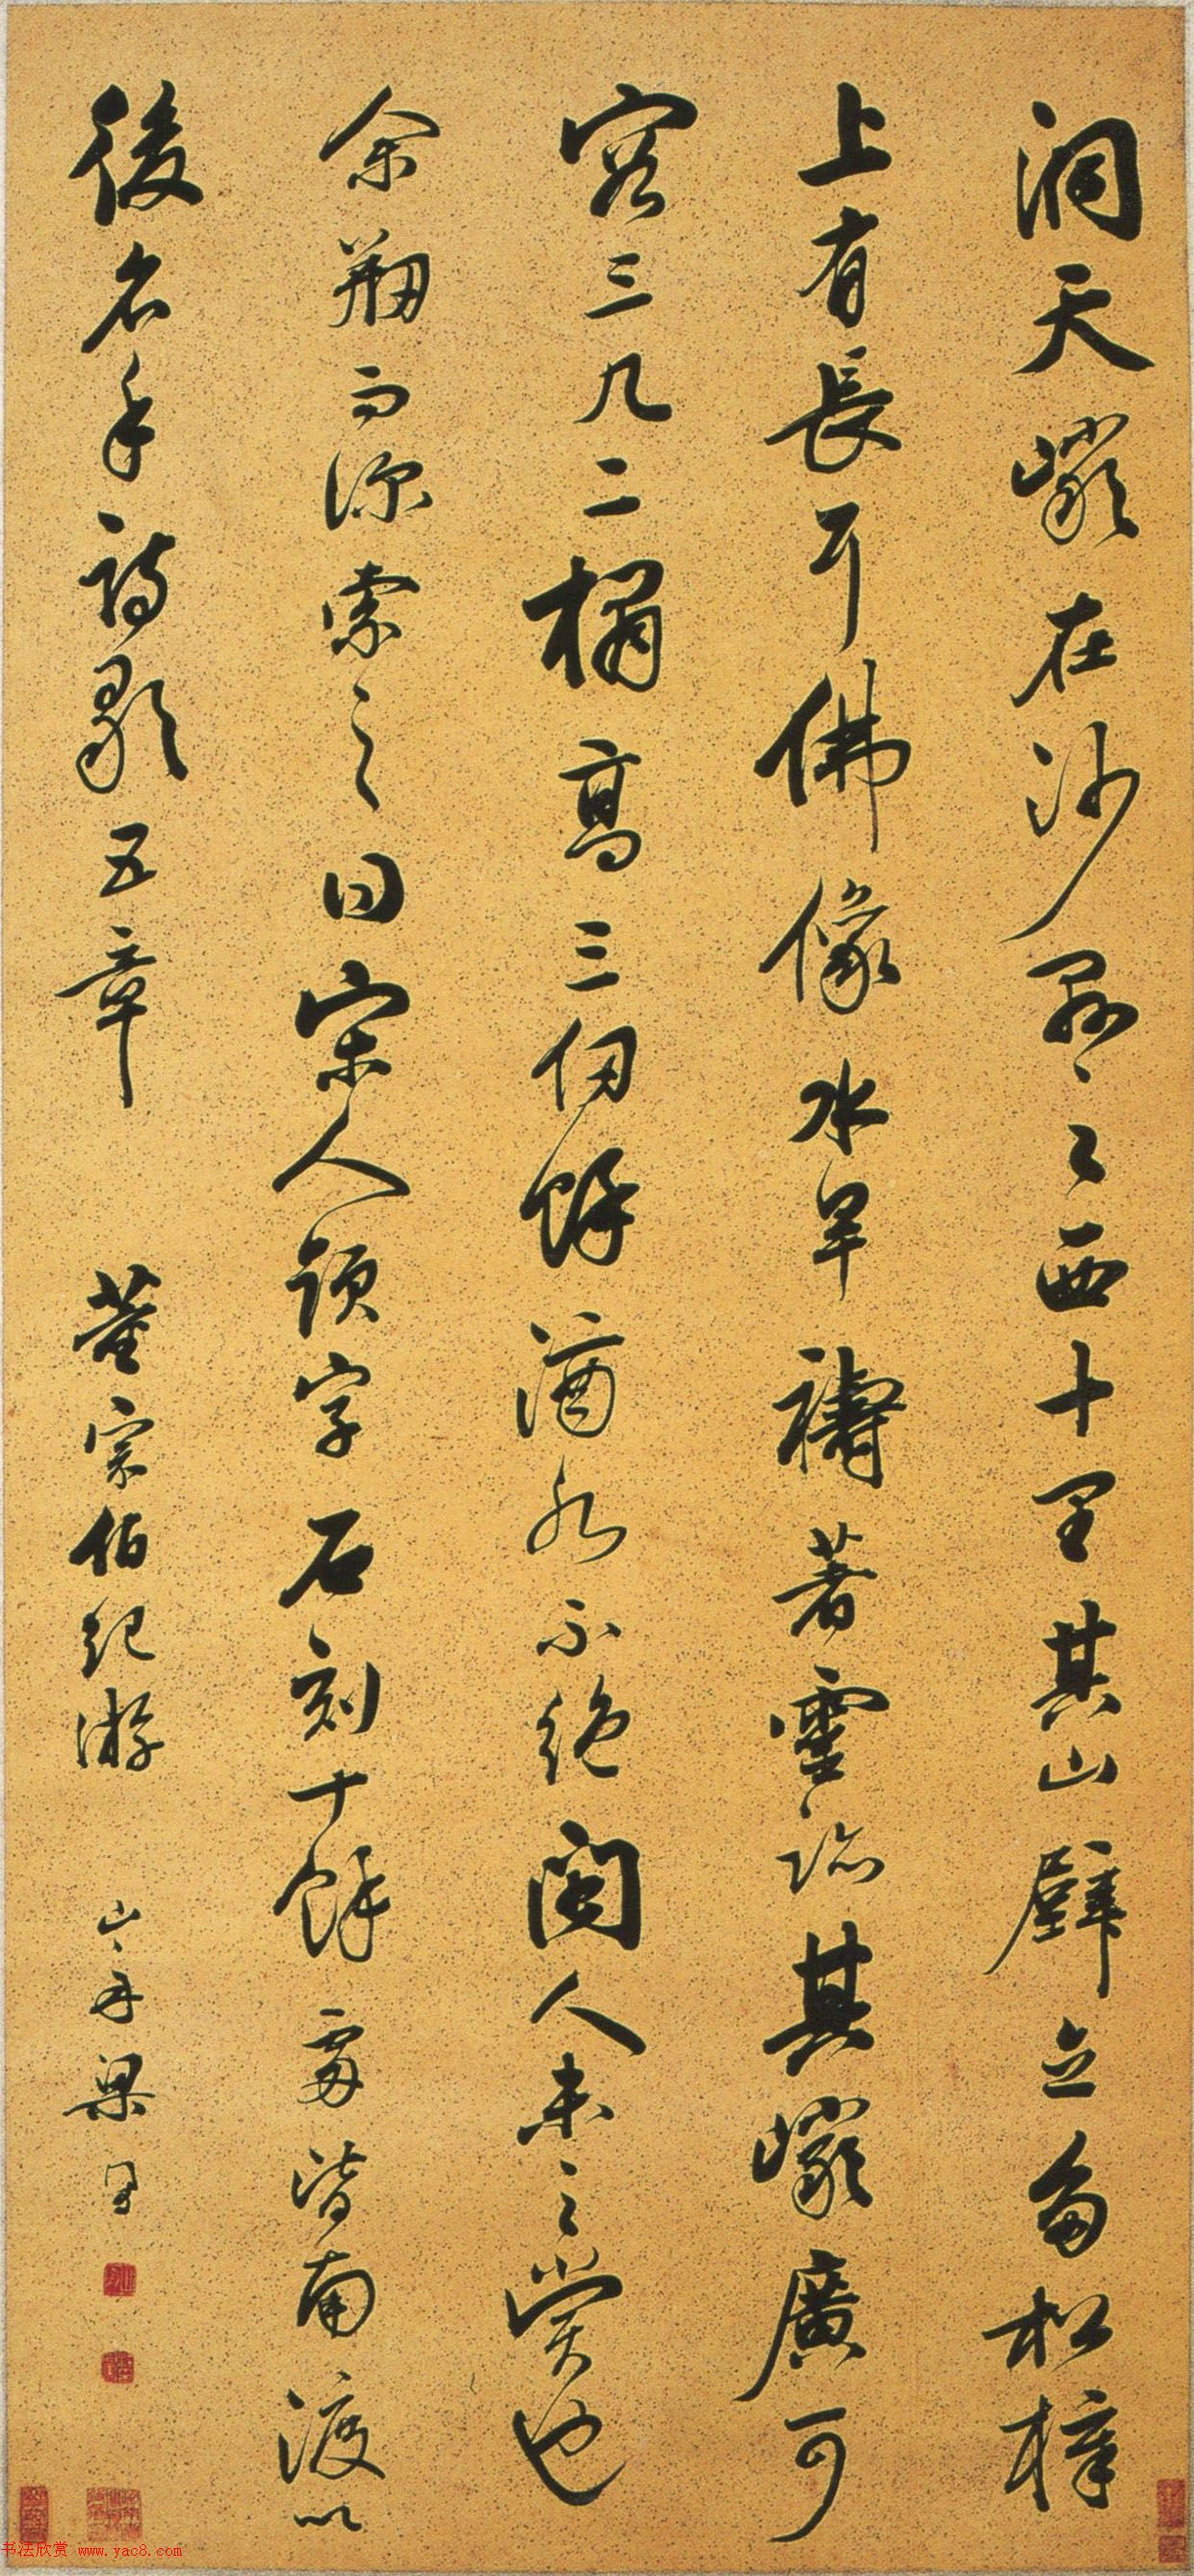 洞天巖在沙縣之西十里其山壁立多松樟
上有長耳佛像水旱禱著靈跡其巖廣可
容三几二榻高三仞餘滴水不絕閩人未之賞也
余創而深索之曰宋人題字石刻十餘處皆南渡以
後名手詩歌五章
董宗伯紀游
山舟梁同書
书法欣赏 www.yac8.com